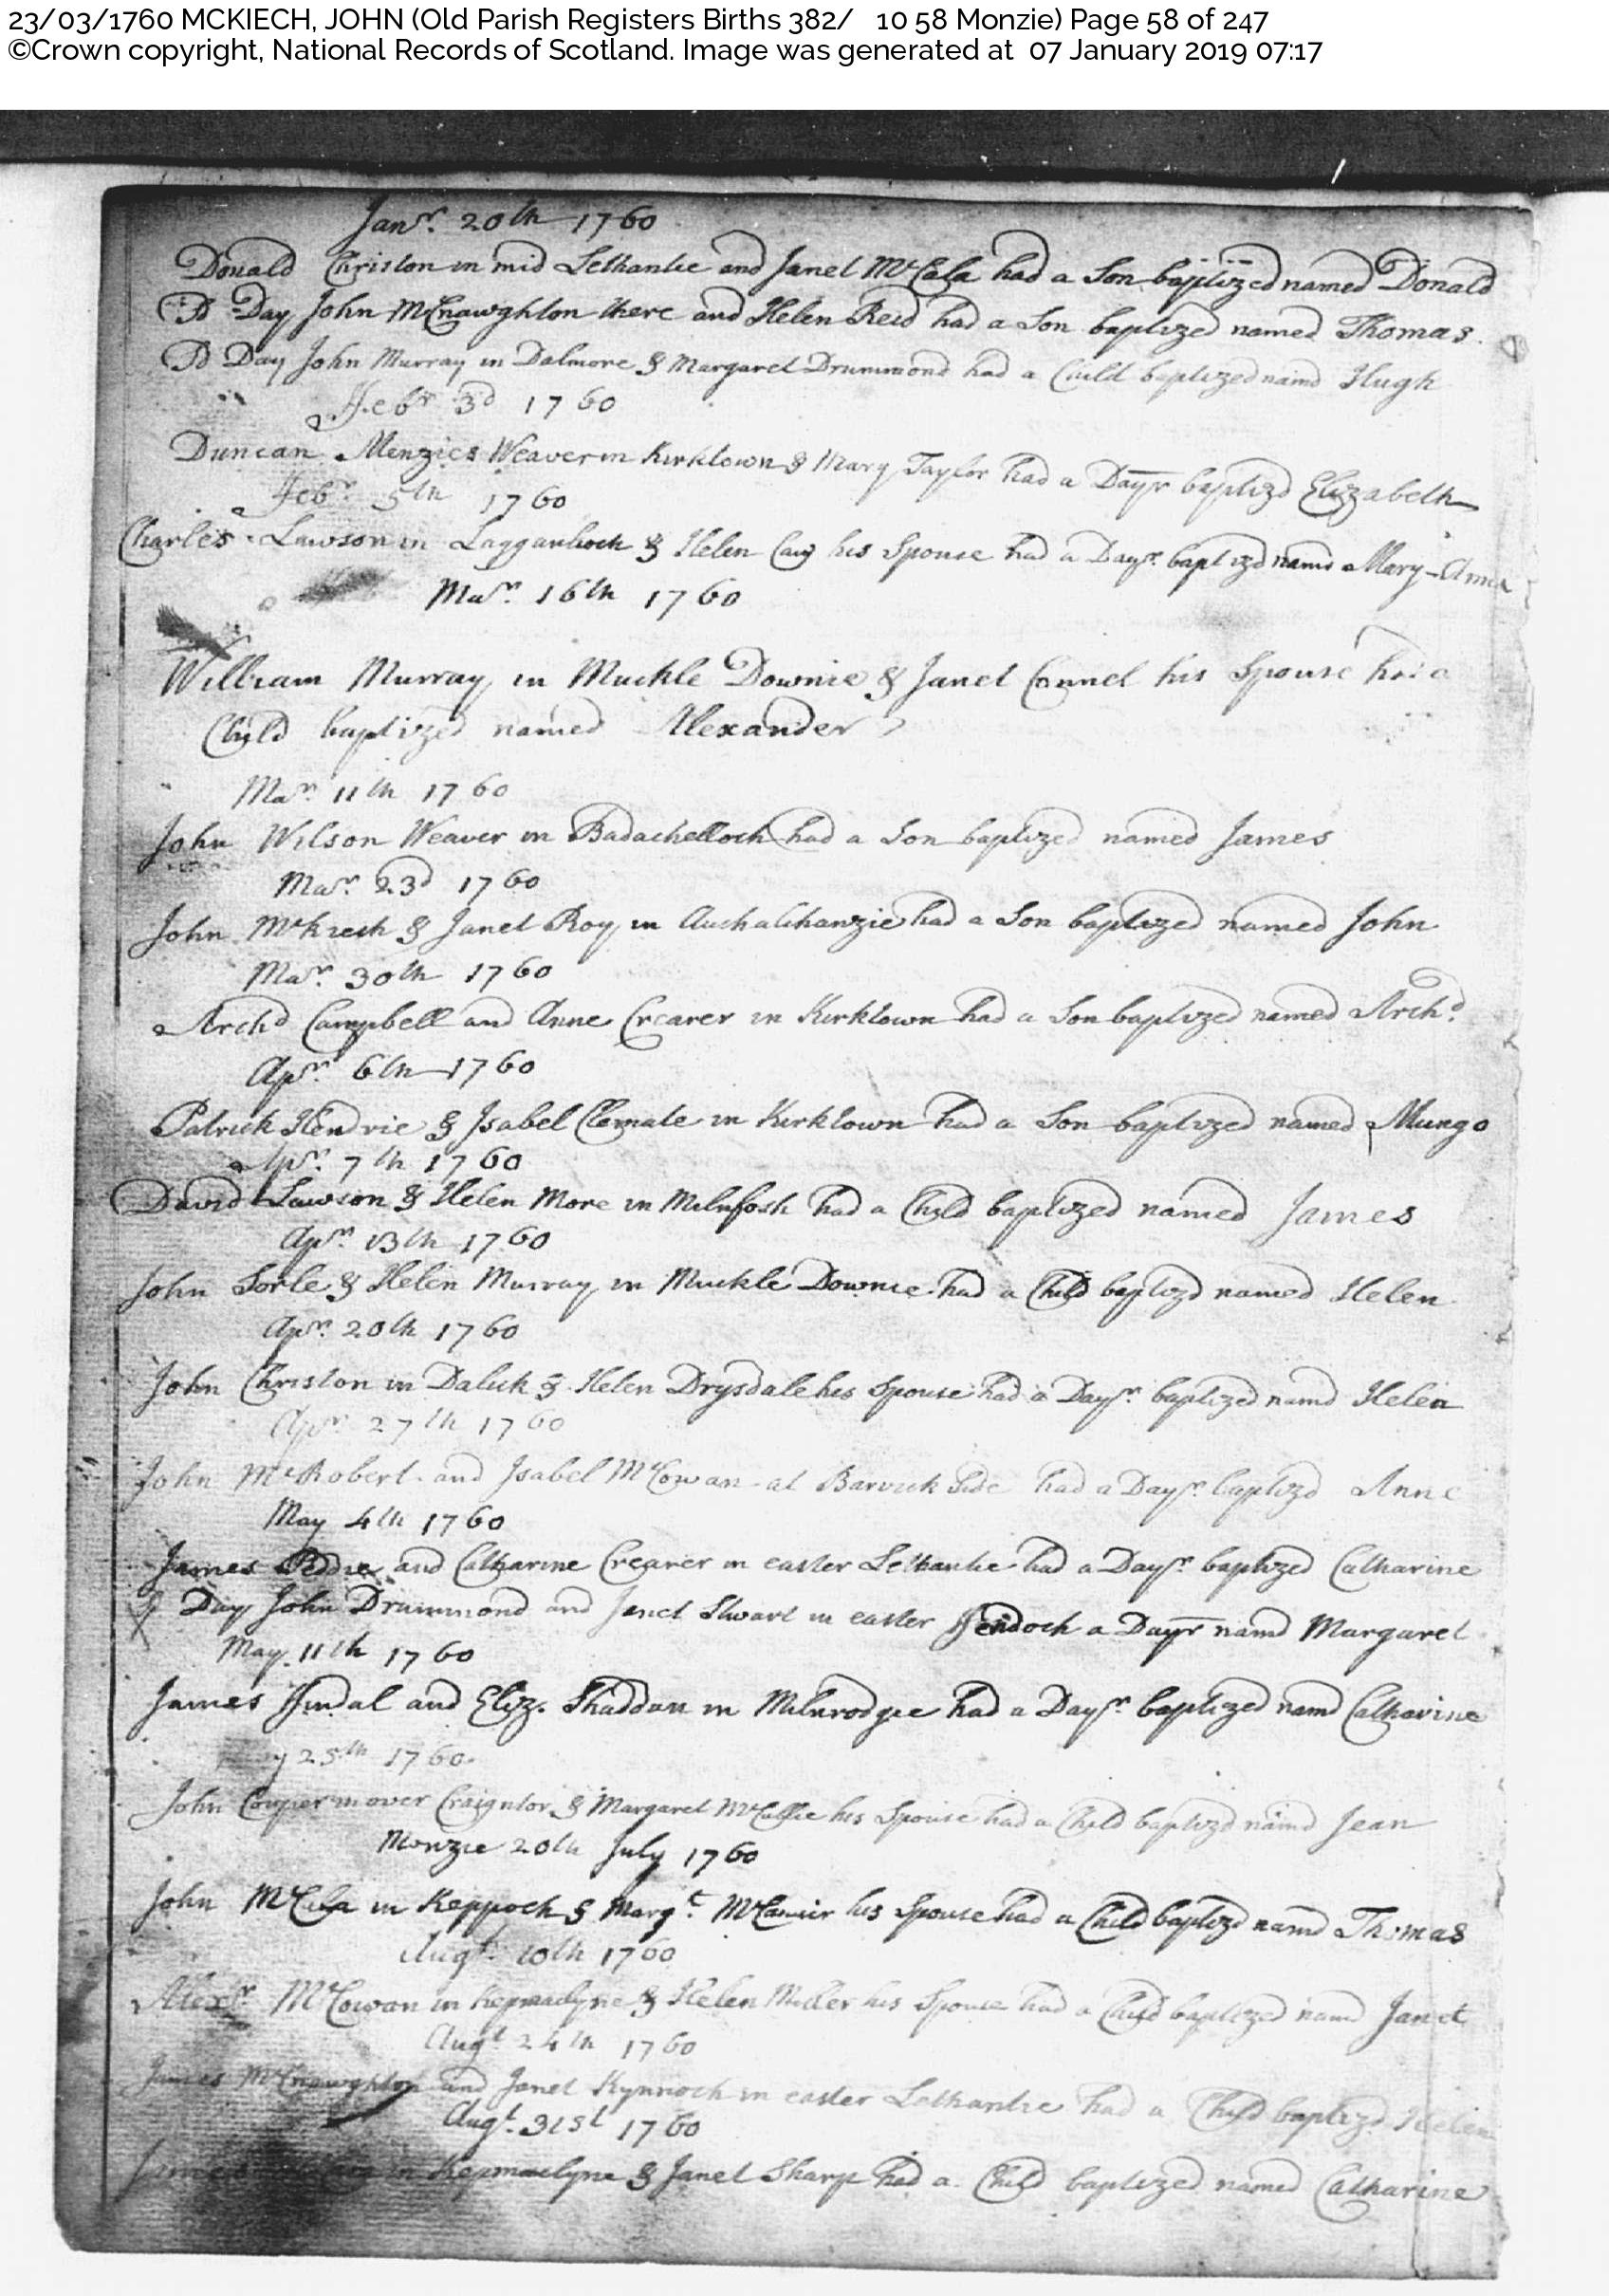 23/03/1760 MCKIECH, JOHN (Old Parish Registers Births 382/ 10 58 Monzie) Page 58 of 247
©Crown copyright, National Records of Scotland. Image was generated at 07 January 2019 07:17
Janry. 20th 1760
Donald Christon in mid Lethantie and Janet McCala had a Son baptized named Donald
Do Day John McNawghton there and Helen Reid had a Son baptized named Thomas.
Do Day John Murray in Dalmore & Margaret Drummond had a Child baptized namd Hugh
Febr 3d 1760
Duncan Menzies Weaver in Kirktown & Mary Taylor had a Dayr baptizd Elizabeth
Febr. 5th 1760
Charles Lawson in Lagganlioch & Helen Caw his Spouse had a Dayr. baptizd namd Mary-Anna
Mar. 16th 1760
William Murray in Muckle Downie & Janet Connel his Spouse had a
Child baptized named Alexander
Mar. 11th 1760
John Wilson Weaver in Badachelloch had a Son baptized named James
Mar. 23d 1760
John McKiech & Janet Roy in Auchalchanzie had a Son baptized named John
Mar. 30th 1760
Archd Campbell and Anne Crearer in Kirktown had a Son baptized named Archd.
Apr. 6th 1760
Patrick Hendrie & Isabel Clemate in Kirktown had a Son baptized named Mungo
Apr. 7th 1760
David Lawson & Helen More in Milnfosh had a Child baptized named James
Apr. 13th 1760
John Sorle & Helen Murray in Muckle Downie had a Child baptizd named Helen
Apr. 20th 1760
John Christon in Daluk & Helen Drysdale his Spouse had a Dayr. baptized namd Helen
Apr. 27th 1760
John McRobert and Isabel McCowan at Barvick Side had a Dayr. baptizd Anne
May 4th 1760
James Peddie and Catharine Crearer in easter Lethantie had a Dayr. baptized Catharine
Day John Drummond and Janet Stwart in easter Fendoch a Dayr namd Margaret
May 11th 1760
James Findal and Eliz. Shaddan in Milnrodgie had a Dayr. baptized namd Catharine
25th 1760.
John Cowper in over Craigntor & Margaret his Spouse had a Child baptizd namd Jean
Monzie 20th July 1760
John McCala in Keppoch & Margt. his Spouse had a Child baptizd namd Thomas
Augt. 10th 1760
Alexr. McCowan in & Helen Miller his Spouse had a Child baptized namd Janet
Augt 24th 1760
James McNawghton and Janet Kynnoch in easter Lethantie had a Child baptizd Helen
Augt. 31st 1760
James in & Janet Sharp had a Child baptized named Catharine